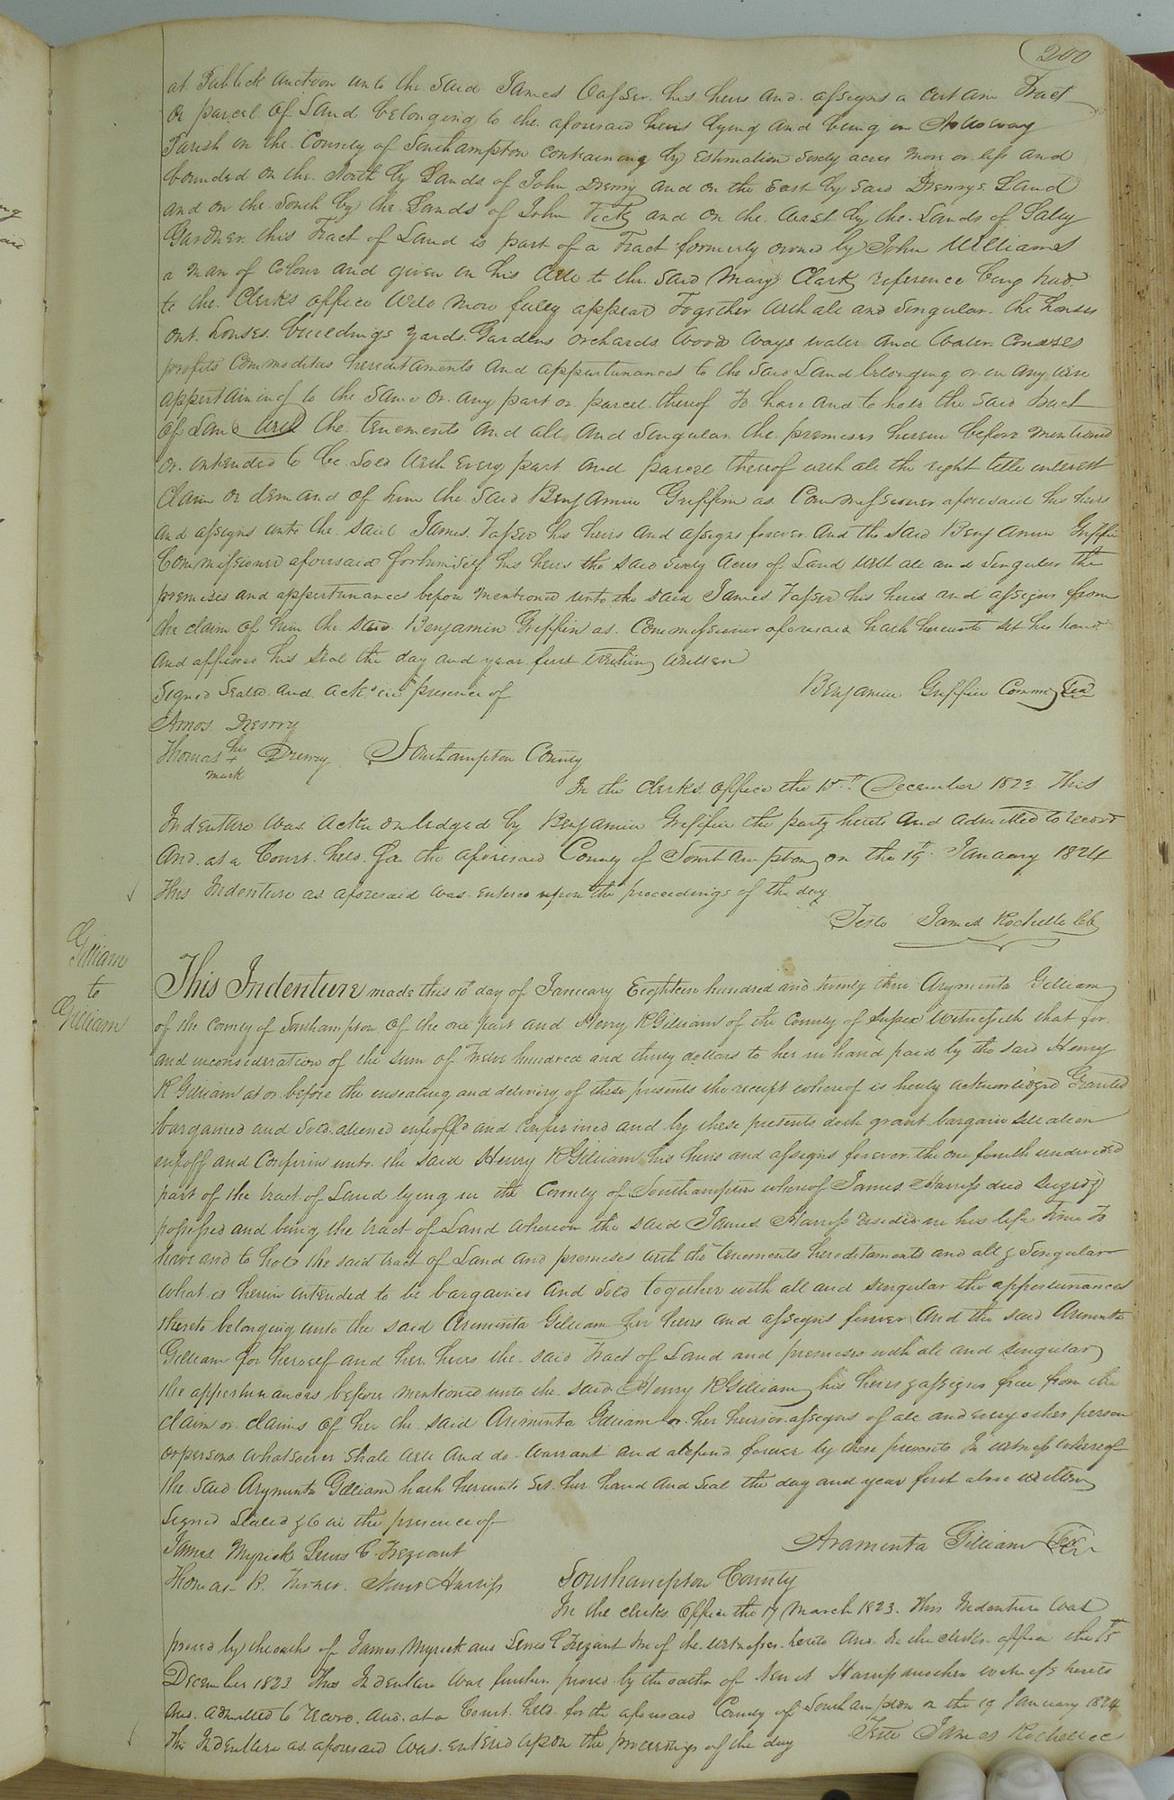 200
at Publick auction unto the said James Vasser his heirs and assigns a certain Tract
or parcel of Land belonging to the aforesaid heirs lying and being in Nottoway
Parish in the County of Southampton containing by Estimation sixty acres more or less and
bounded on the North by Lands of John Drewry and on the East by said Drewrys Land
and on the South by the Lands of John and on the West by the Lands of Sally
Gardner this Tract of Land is part of a Tract formerly owned by John Williams
a man of Colour and given in his Will to the said Mary Clark reference being had
to the Clerks office will more fully appear Together with all and Singular the houses
out houses buildings yards Gardens orchards Woods ways water and Water Courses
profits Commodities hereditaments and appurtunances to the said Land belonging or in any wise
appertaining to the same or any part or parcel thereof To have and to hold the said tract
of Land with the tenements and all and Singular the premises herein before mentioned
or intended to be sold with every part and parcel thereof with all the right title interest
Claim or demand of him the said Benjamin Griffin as Commissioner aforesaid his heirs
and assigns unto the said James Vasser his heirs and assigns forever and the said Benjamin Griffin
Commissioner aforesaid for himself his heirs the said sixty acres of Land with all and Singular the
premises and appertunances before mentioned unto the said James Vasser his heirs and assigns from
the claim of him the said Benjamin Griffin as Commissioner aforesaid hath hereunto set his hand
and affixed his seal the day and year first written
Signed Sealed and Ackd in presence of Benjamin Griffin Commr Seal
Amos Drewry
Thomas his + mark Drewry Southampton County
In the Clerks office the 15th December 1823 This
Indenture was acknowledged by Benjamin Griffin the party hereto and admitted to record
And at a Court held for the aforesaid County of Southampton on the 19th January 1824
This Indenture as aforesaid was entered upon the proceedings of the day
Teste James Rochelle CC
Gilliam
to
Gilliam
This Indenture made this 10 day of January Eighteen hundred and twenty three Arymenta Gilliam
of the County of Southampton of the one part and Henry R Gilliam of the County of Sussex Witnesseth that for
and in consideration of the sum of Twelve hundred and thirty dollars to her in hand paid by the said Henry
R Gilliam at or before the ensealing and delivery of these presents the receipt whereof is hereby acknowledged Granted
bargained and sold aliened enfeoffd and Confirmed and by these presents doth grant bargain sell alien
enfeoff and Confirm unto the said Henry R Gilliam his heirs and assigns forever the one fourth undivided
part of the tract of Land lying in the County of Southampton whereof James Harriss died seized
possessed and being the tract of Land whereon the said James Harriss resided in his life Time To
have and to hold the said tract of Land and premises with the tenements hereditaments and all & Singular
what is herein intended to be bargained and sold together with all and singular the appertunances
thereto belonging unto the said Areminta Gilliam her heirs and assigns forever And the said Areminta
Gilliam for herself and her heirs the said Tract of Land and premises with all and singular
the appertunances before mentioned unto the said Henry R Gilliam his heirs & assigns free from the
claim or claims of her the said Areminta Gilliam or her heirs or assigns of all and every other person
or persons whatsoever Shall will and do warrant and defend forever by these presents In witness whereof
the said Arymenta Gilliam hath hereunto Set her hand and Seal the day and year first above written
Signed Sealed &c in the presence of
Araminta Gilliam Seal
James Myrick Lewis C
Thomas R. Turner Harriss Southampton County
In the clerks Office the 17 March 1823. This Indenture was
proved by the oaths of James Myrick and Lewis C two of the witnesses hereto And in the clerks office the 15th
December 1823 This Indenture was further proved by the oath of Harriss another witness hereto
And admitted to record. And at a Court held for the aforesaid County of Southampton on the 19 January 1824
This Indenture as aforesaid was entered upon the proceedings of the day Teste James Rochelle CC